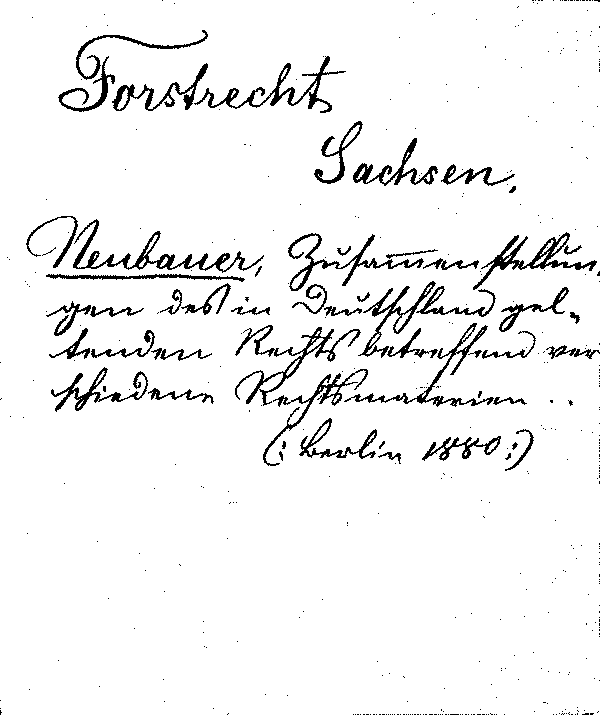 Forstrecht
Sachsen.
Neubauer, Zusammenstellun-
gen des in Deutschland gel-
tenden Rechts betreffend ver
schiedene Rechtsmaterien ..
(: Berlin 1880 :)